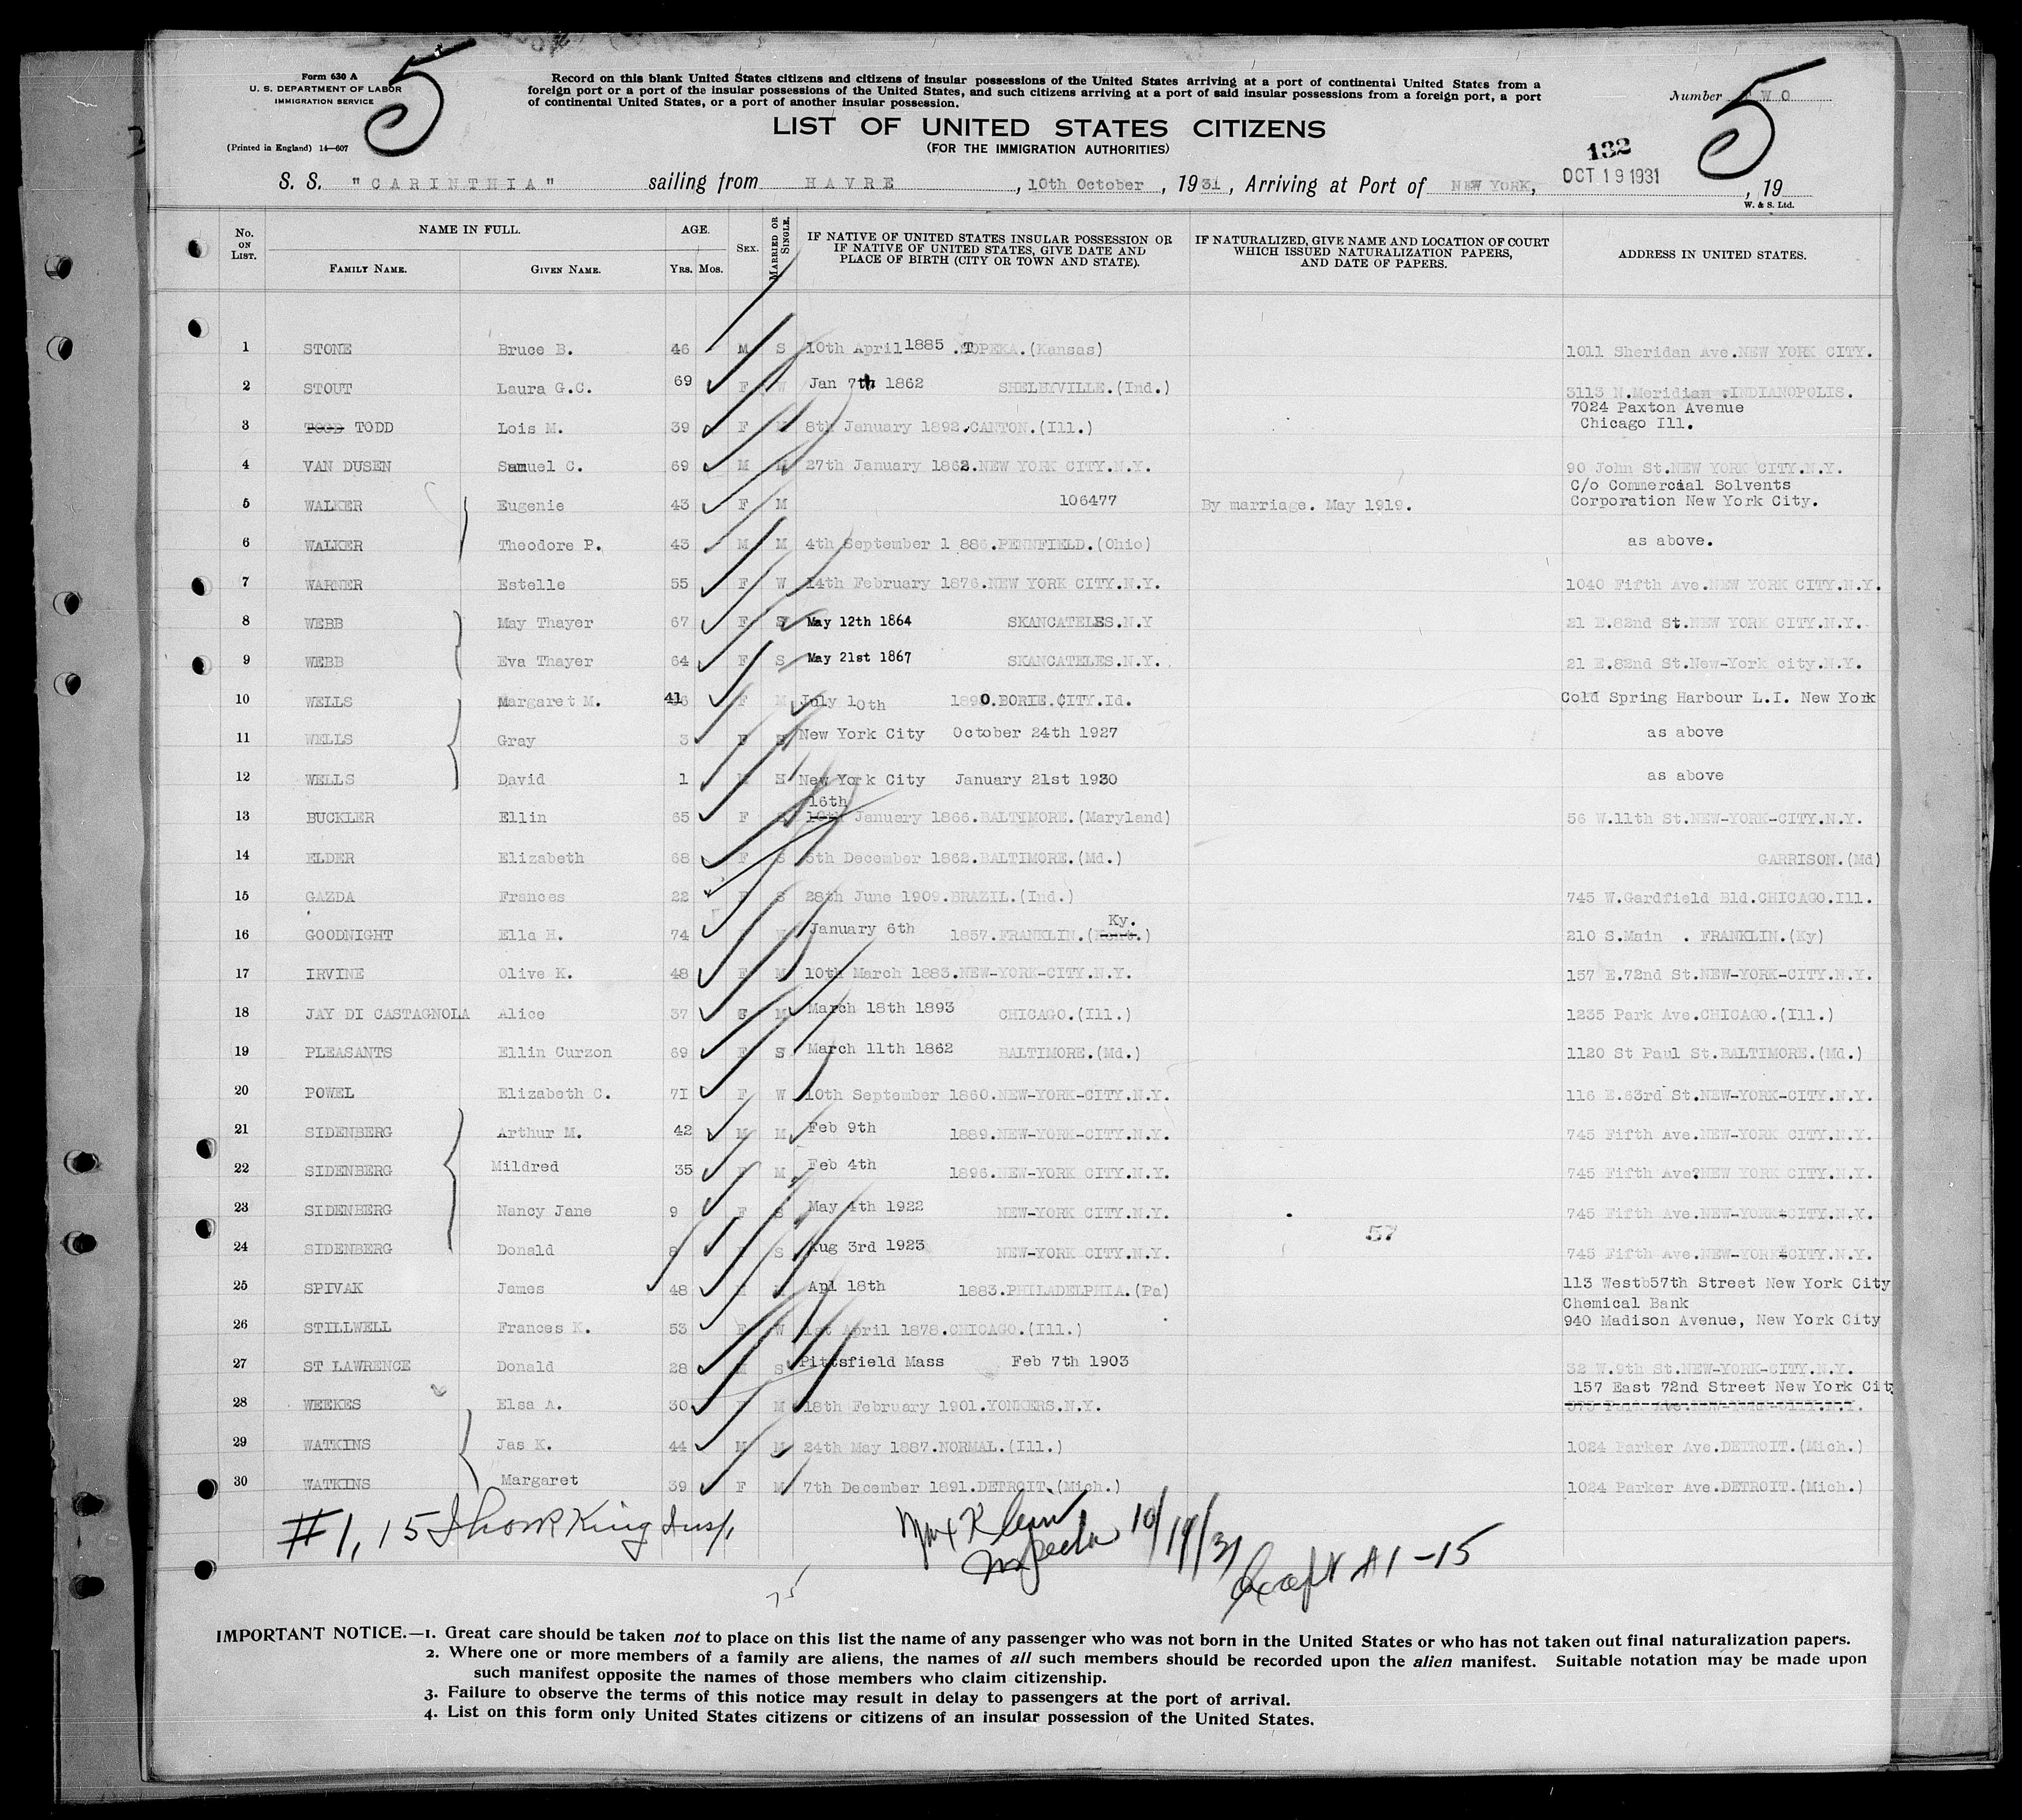 Form 630 A
U. S. DEPARTMENT OF LABOR
IMMIGRATION SERVICE
(Printed in England) 14—607
5
Record on this blank United States citizens and citizens of insular possessions of the United States arriving at a port of continental United States from a
foreign port or a port of the insular possessions of the United States, and such citizens arriving at a port of said insular possessions from a foreign port, a port
of continental United States, or a port of another insular possession.
Number WO
5
LIST OF UNITED STATES CITIZENS
(FOR THE IMMIGRATION AUTHORITIES)
132
S. S. "CARINTHIA" sailing from HAVRE, 10th October, 1931, Arriving at Port of NEW YORK, OCT 19 1931, 19
W. & S. Ltd.
No. ON LIST. NAME IN FULL. AGE. SEX. MARRIED OR SINGLE. IF NATIVE OF UNITED STATES INSULAR POSSESSION OR IF NATIVE OF UNITED STATES, GIVE DATE AND PLACE OF BIRTH (CITY OR TOWN AND STATE). IF NATURALIZED, GIVE NAME AND LOCATION OF COURT WHICH ISSUED NATURALIZATION PAPERS, AND DATE OF PAPERS. ADDRESS IN UNITED STATES.
FAMILY NAME. GIVEN NAME. YRS. MOS.
1 STONE Bruce B. 46 M S 10th April 1885 .TOPEKA.(Kansas) 1011 Sheridan Ave.NEW YORK CITY.
2 STOUT Laura G.C. 69 F W Jan 7th 1862 SHELBYVILLE.(Ind.) 3113 N.Meridian .INDIANOPOLIS.
7024 Paxton Avenue
3 TODD Lois M. 39 F 8th January 1892.CANTON.(Ill.) Chicago Ill.
4 VAN DUSEN Samuel C. 69 M M 27th January 1862.NEW YORK CITY.N.Y. 90 John St.NEW YORK CITY.N.Y.
C/o Commercial Solvents
5 WALKER Eugenie 43 F M 106477 By marriage. May 1919. Corporation New York City.
6 WALKER Theodore P. 43 M M 4th September 1 886.PENNFIELD.(Ohio) as above.
7 WARNER Estelle 55 F W 14th February 1876.NEW YORK CITY.N.Y. 1040 Fifth Ave.NEW YORK CITY.N.Y.
8 WEBB May Thayer 67 F S May 12th 1864 SKANCATELES.N.Y 21 E.82nd St.NEW YORK CITY.N.Y.
9 WEBB Eva Thayer 64 F S May 21st 1867 SKANCATELES.N.Y. 21 E.82nd St.New-York city.N.Y.
10 WELLS Margaret M. 41 F M July 10th 1890.BORIE.CITY.Id. Cold Spring Harbour L.I. New York
11 WELLS Gray 3 New York City October 24th 1927 as above
12 WELLS David 1 New York City January 21st 1930 as above
16th
13 BUCKLER Ellin 65 F 10th January 1866.BALTIMORE.(Maryland) 56 W.11th St.NEW-YORK-CITY.N.Y.
14 ELDER Elizabeth 68 F S 5th December 1862.BALTIMORE.(Md.) GARRISON.(Md)
15 GAZDA Frances 22 F S 28th June 1909.BRAZIL.(Ind.) 745 W.Gardfield Bld.CHICAGO.Ill.
Ky.
16 GOODNIGHT Ella H. 74 January 6th 1857.FRANKLIN.(Kent.) 210 S.Main . FRANKLIN.(Ky)
17 IRVINE Olive K. 48 F M 10th March 1883.NEW-YORK-CITY.N.Y. 157 E.72nd St.NEW-YORK-CITY.N.Y.
18 JAY DI CASTAGNOLA Alice 37 F M March 18th 1893 CHICAGO.(Ill.) 1235 Park Ave.CHICAGO.(Ill.)
19 PLEASANTS Ellin Curzon 69 F S. March 11th 1862 BALTIMORE.(Md.) 1120 St Paul St.BALTIMORE.(Md.)
20 POWEL Elizabeth C. 71 F W 10th September 1860.NEW-YORK-CITY.N.Y. 116 E.63rd St.NEW-YORK-CITY.N.Y.
21 SIDENBERG Arthur M. 42 M M Feb 9th 1889.NEW-YORK-CITY.N.Y. 745 Fifth Ave.NEW-YORK CITY.N.Y.
22 SIDENBERG Mildred 35 F M Feb 4th 1896.NEW-YORK CITY.N.Y. 745 Fifth Ave?NEW YORK CITY.N.Y.
23 SIDENBERG Nancy Jane 9 F S May 4th 1922 NEW-YORK CITY.N.Y. 745 Fifth Ave.NEW-YORK-CITY.N.Y.
57
24 SIDENBERG Donald 8 S Aug 3rd 1923 NEW-YORK CITY.N.Y. 745 Fifth Ave.NEW-YORK-CITY.N.Y.
25 SPIVAK James 48 Apl 18th 1883.PHILADELPHIA.(Pa) 113 Westb57th Street New York City
Chemical Bank
26 STILLWELL Frances K. 53 F W 1st April 1878.CHICAGO.(Ill.) 940 Madison Avenue, New York City
27 ST LAWRENCE Donald 28 S Pittsfield Mass Feb 7th 1903 32 W.9th St.NEW-YORK-CITY.N.Y.
157 East 72nd Street New York Cit
28 WEEKES Elsa A. 30 M 18th February 1901.YONKERS.N.Y.
29 WATKINS Jas K. 44 M M 24th May 1887.NORMAL.(Ill.) 1024 Parker Ave.DETROIT.(Mich.)
30 WATKINS Margaret 39 F M 7th December 1891.DETROIT.(Mich.) 1024 Parker Ave.DETROIT.(Mich.)
#1, 15 King Insp.
Max Klein
Inspector 10/19/31
Except #1-15
IMPORTANT NOTICE.—1. Great care should be taken not to place on this list the name of any passenger who was not born in the United States or who has not taken out final naturalization papers.
2. Where one or more members of a family are aliens, the names of all such members should be recorded upon the alien manifest. Suitable notation may be made upon
such manifest opposite the names of those members who claim citizenship.
3. Failure to observe the terms of this notice may result in delay to passengers at the port of arrival.
4. List on this form only United States citizens or citizens of an insular possession of the United States.